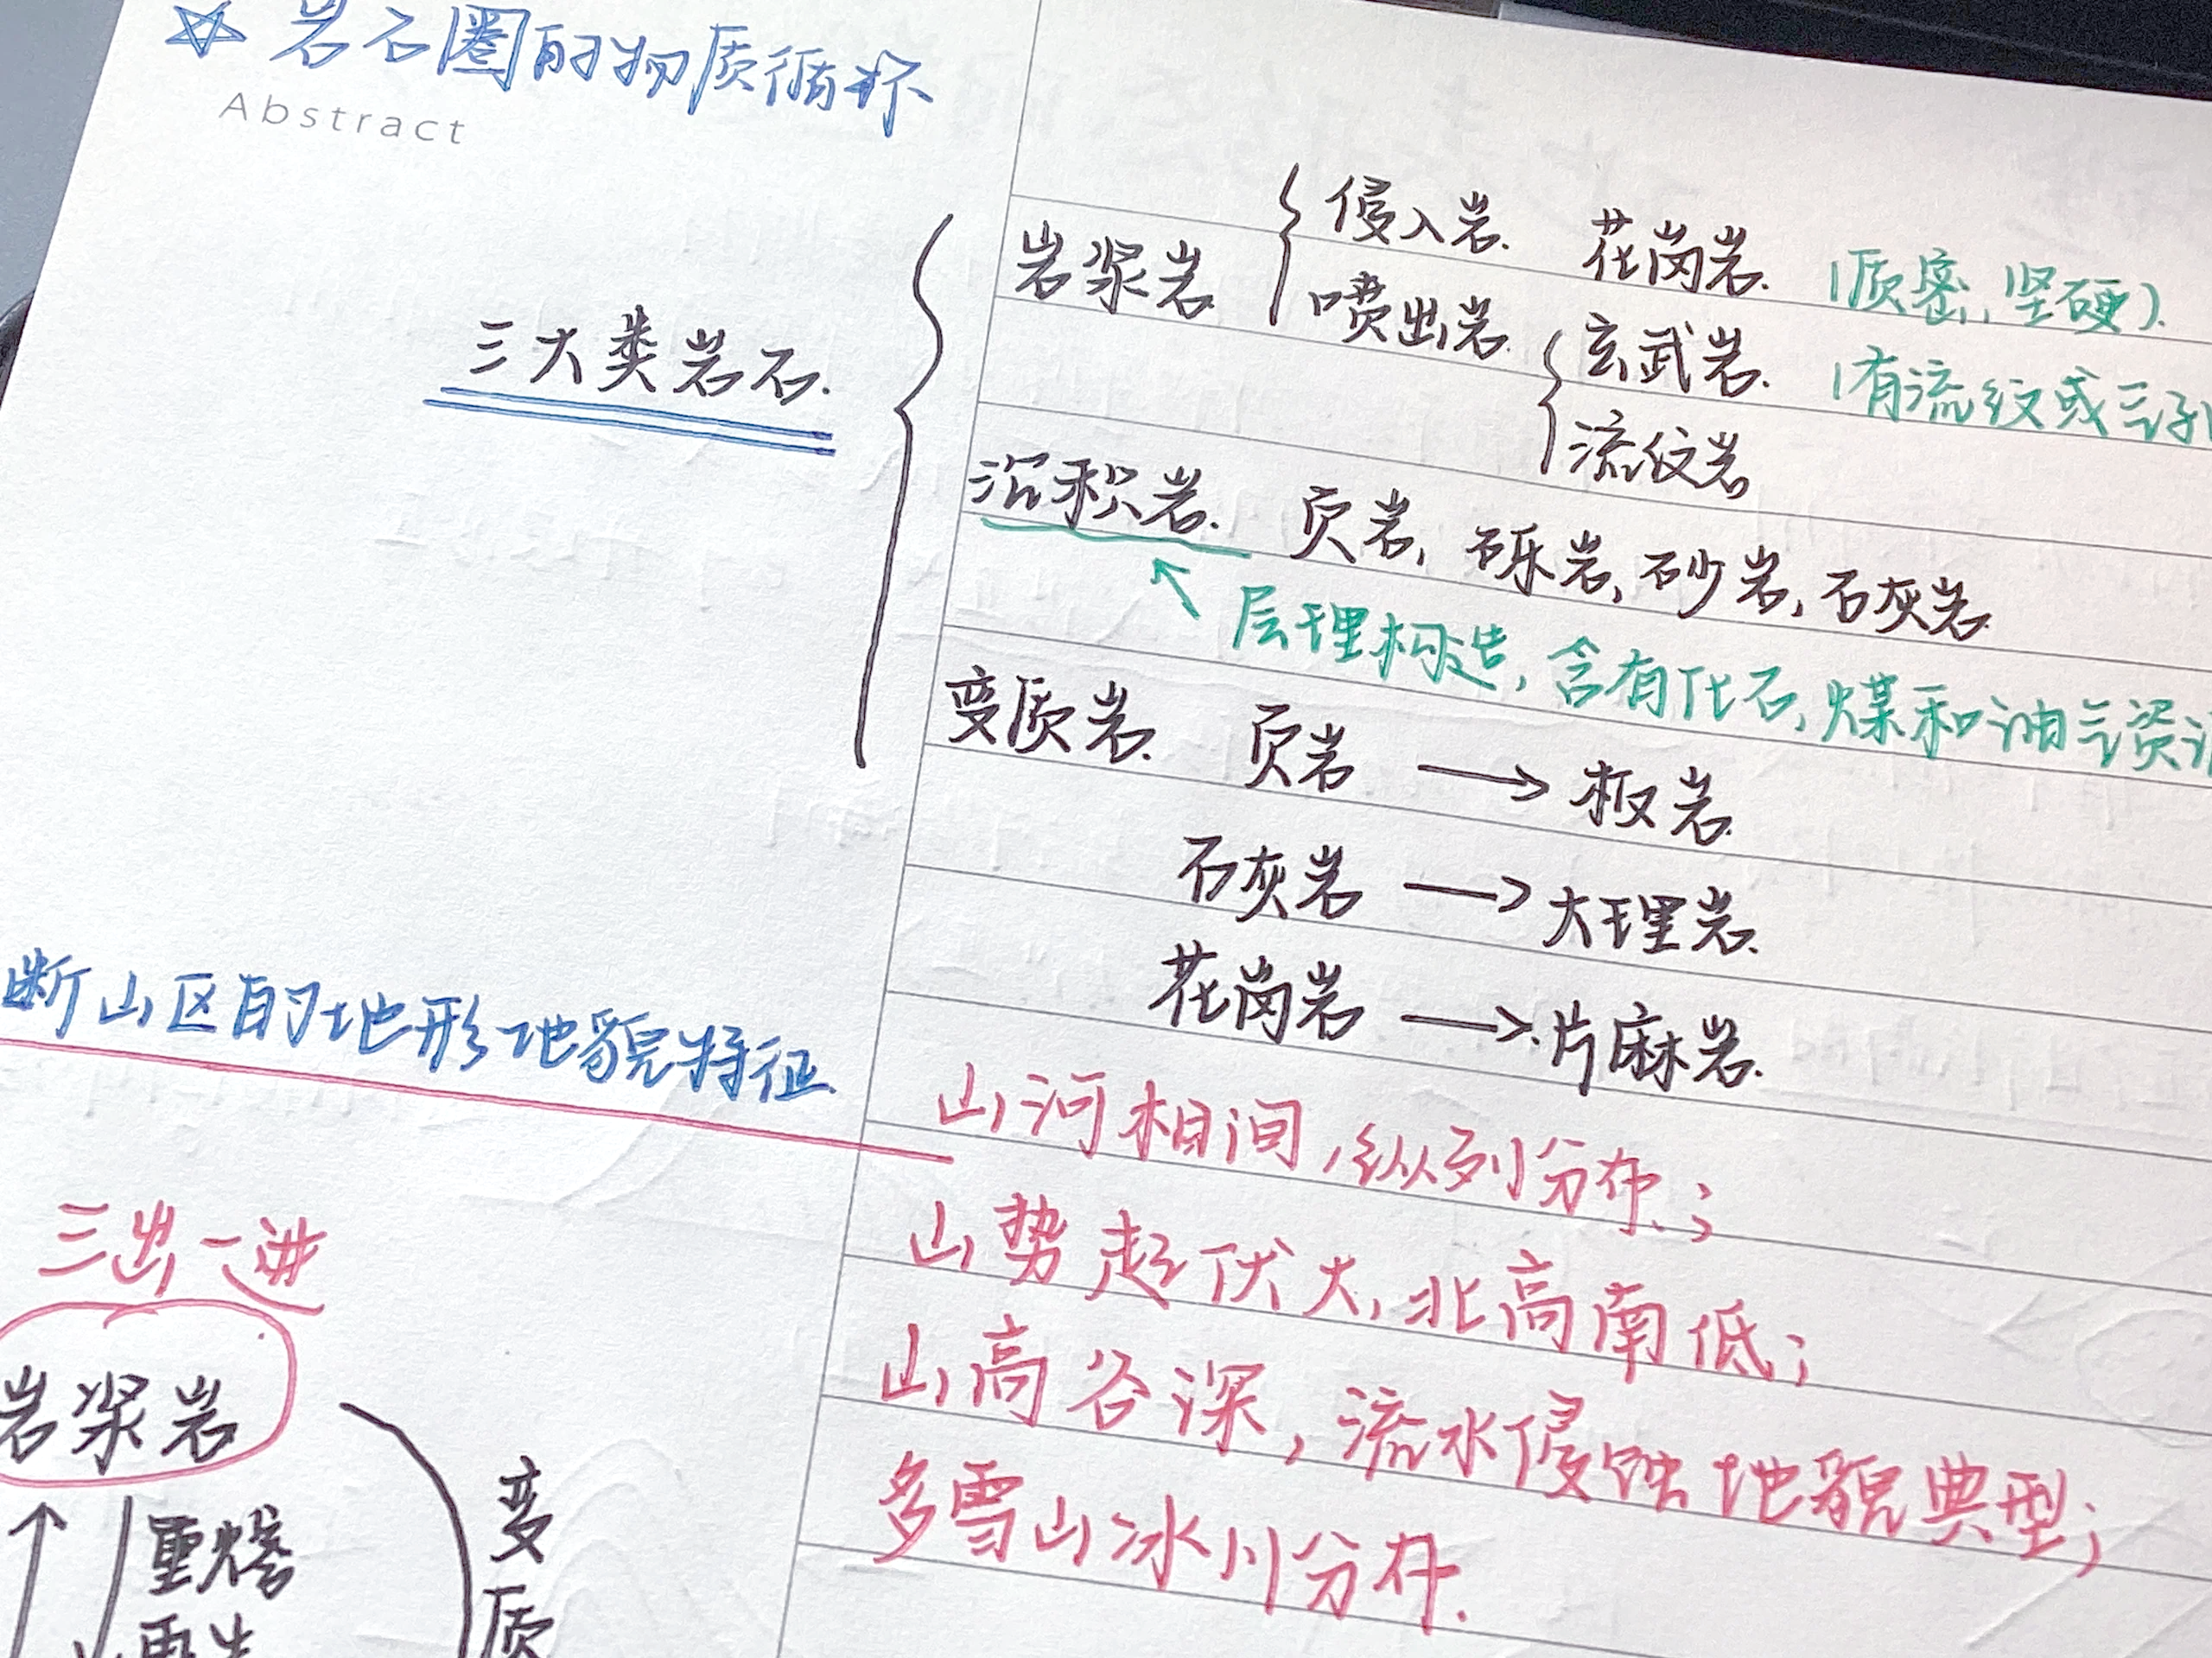 ☆ 岩石圈的物质循环
Abstract
三大类岩石.
岩浆岩
侵入岩. 花岗岩. (质密, 坚硬).
喷出岩. 玄武岩. (有流纹或气孔
流纹岩
沉积岩. 页岩, 砾岩, 砂岩, 石灰岩.
层理构造, 含有化石, 煤和油气资
变质岩. 页岩 → 板岩.
石灰岩 → 大理岩.
花岗岩 → 片麻岩.
断山区的地形地貌特征.
山河相间, 纵列分布.;
山势起伏大, 北高南低;
山高谷深, 流水侵蚀地貌典型;
多雪山冰川分布.
三出一进
岩浆岩
重熔
再生
变质